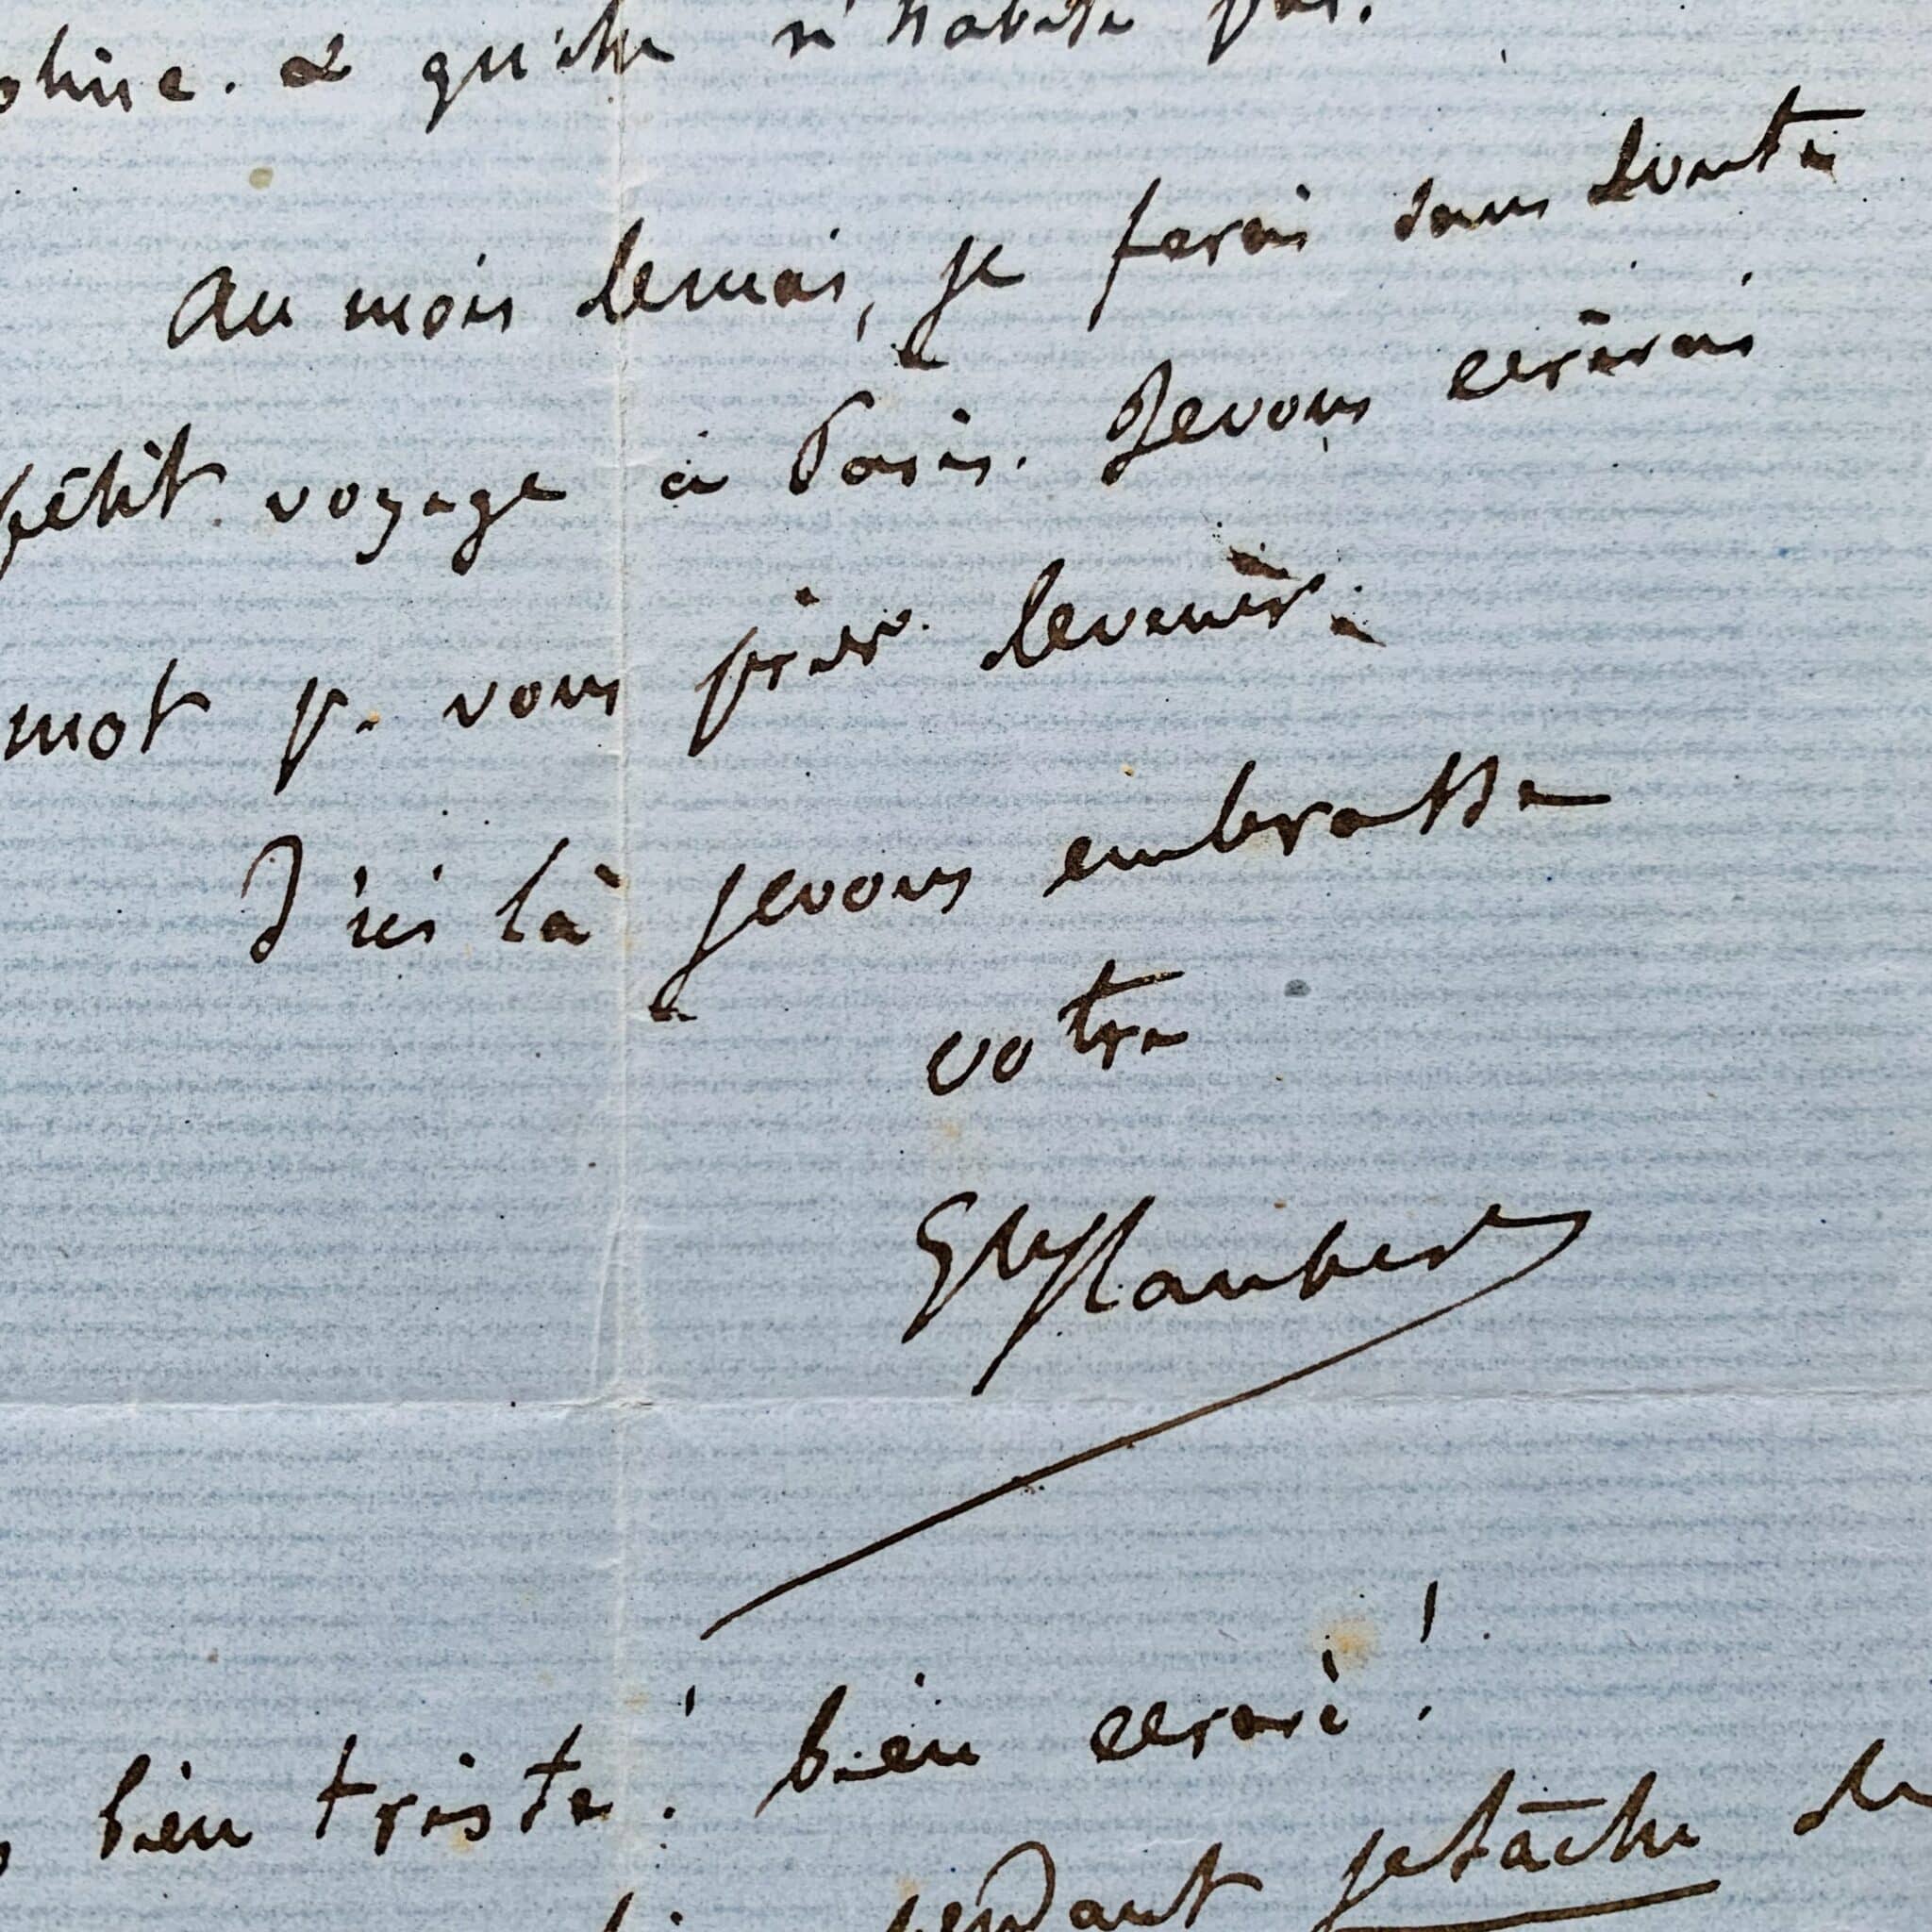 oline. & qu'elle n'habite pas.
Au mois de mai, je ferai sans doute
petit voyage à Paris. Je vous écrirai
mot p. vous prier de venir.
D'ici là je vous embrasse
votre
Gve Flaubert
bien triste ! bien écrasé !
cependant je tâche de